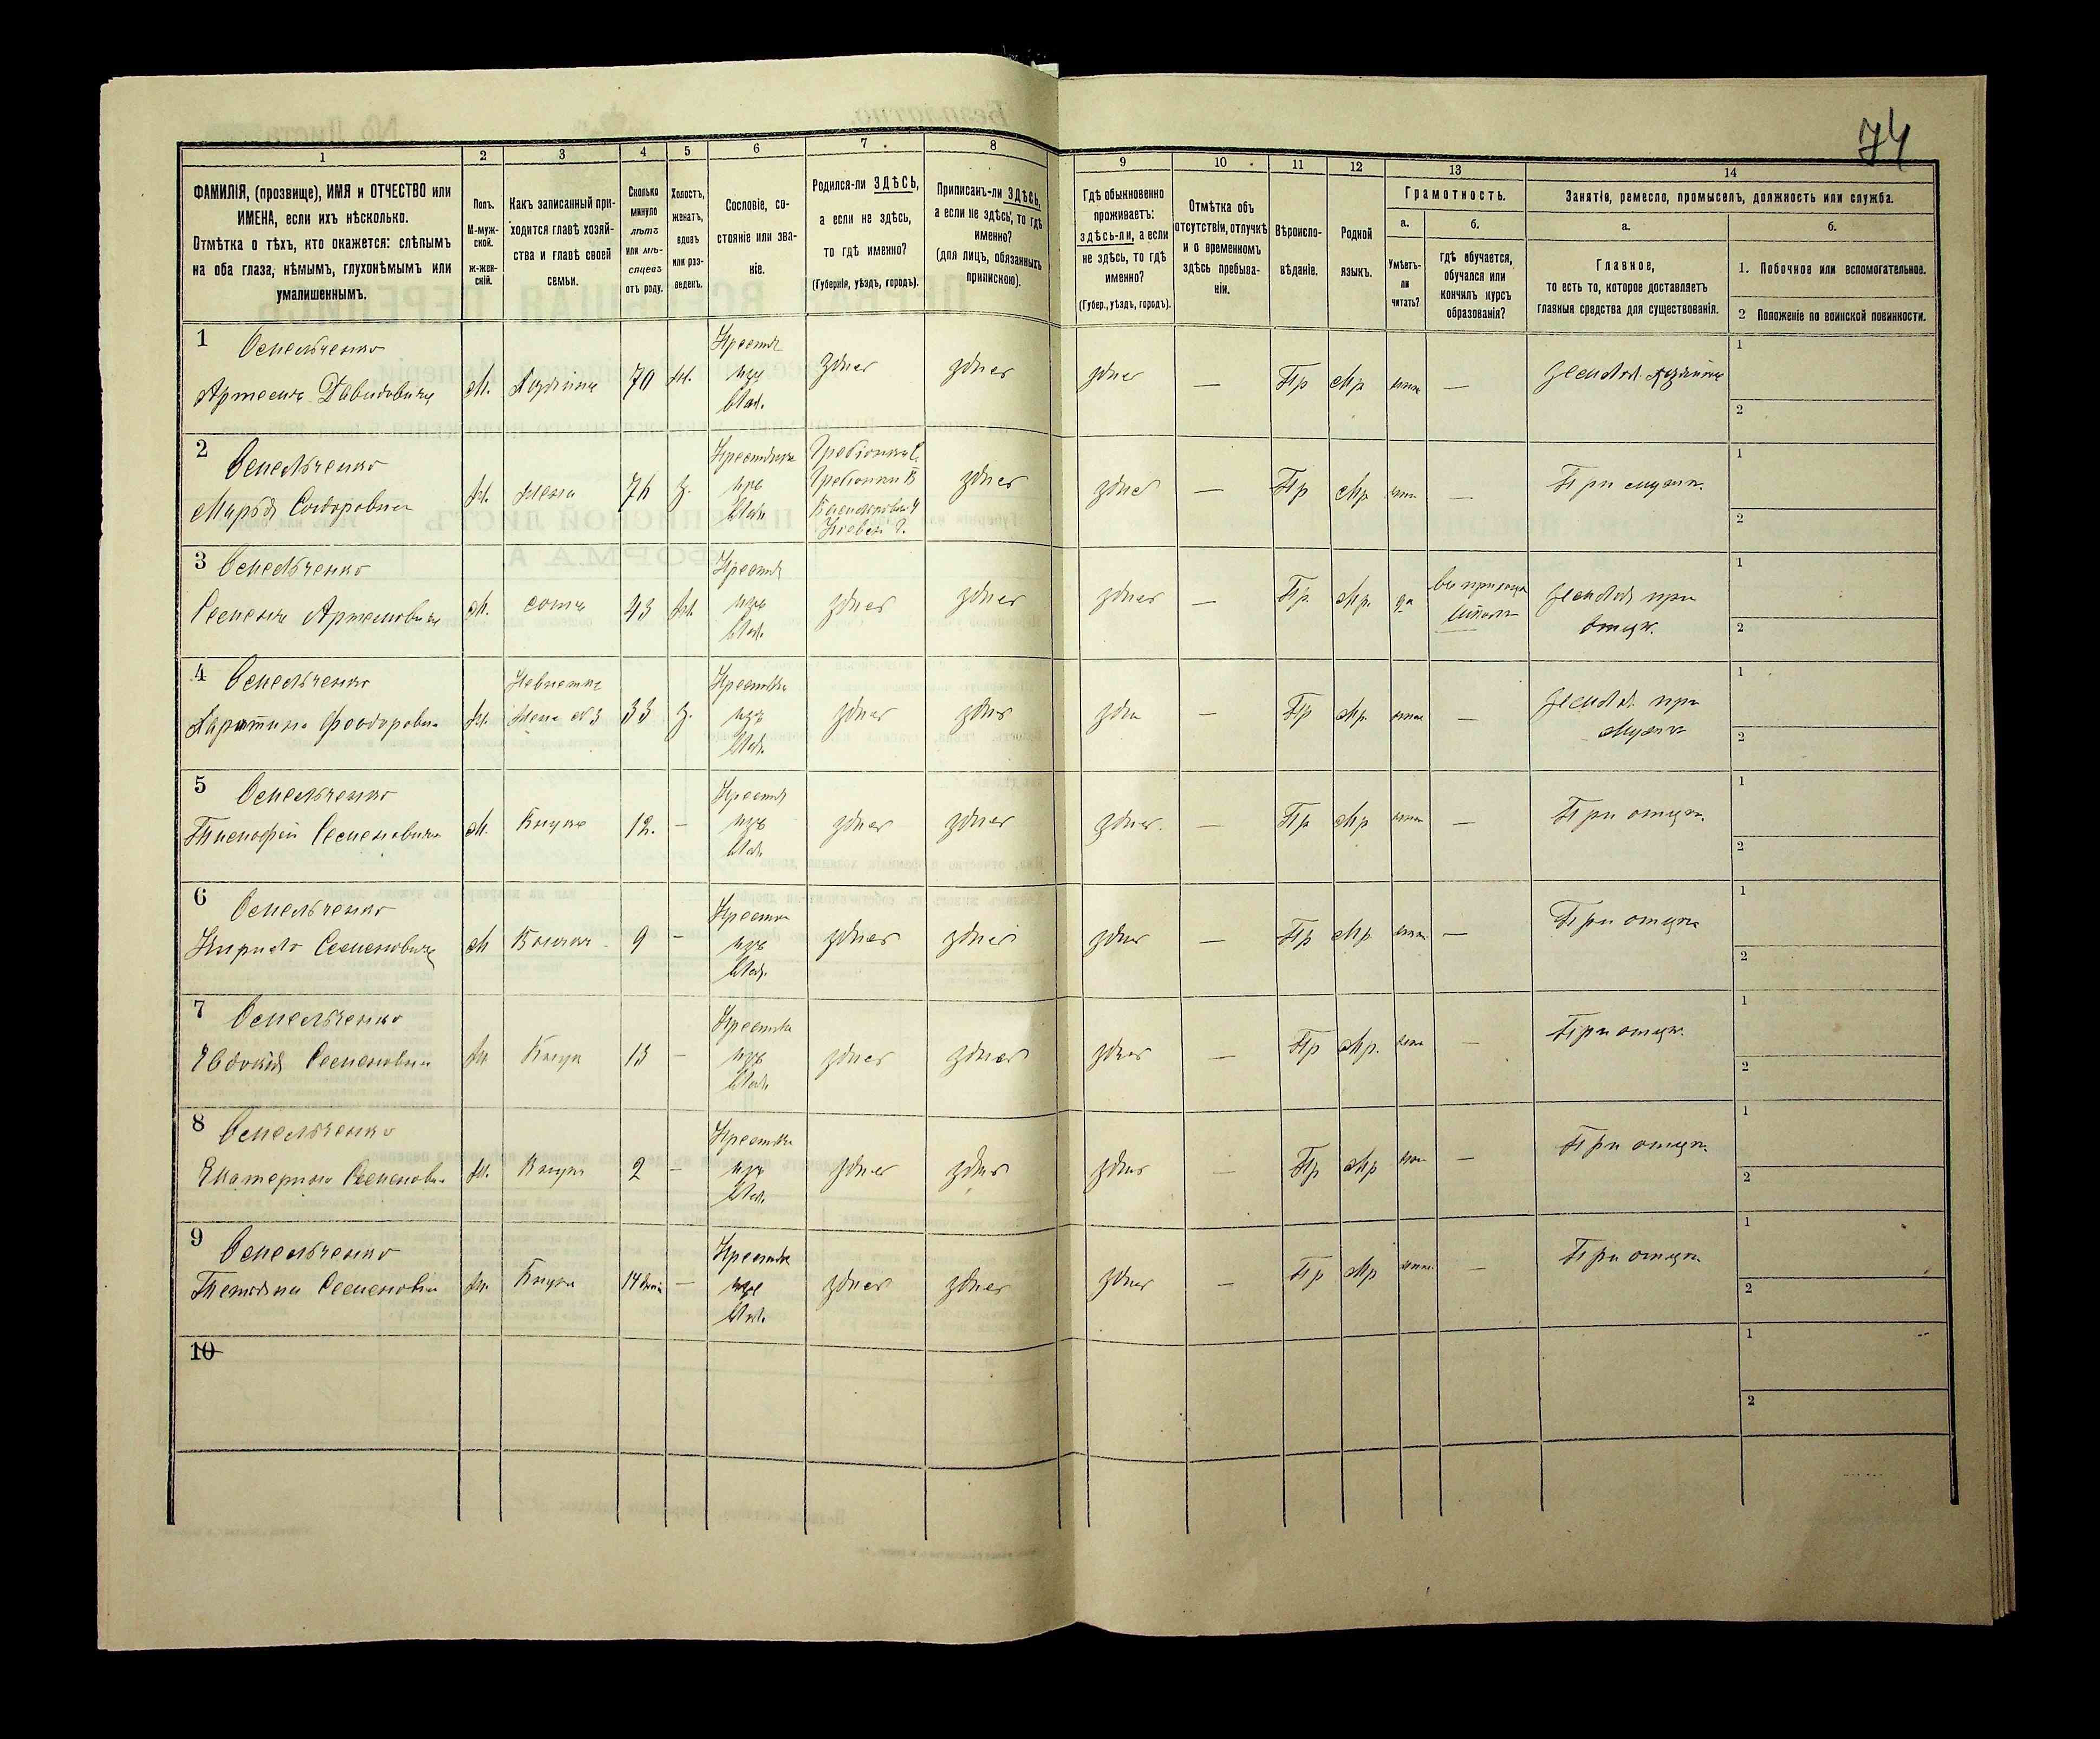 74
1 2 3 4 5 6 7 8 9 10 11 12 13 14
ФАМИЛІЯ, (прозвище), ИМЯ и ОТЧЕСТВО или
ИМЕНА, если ихъ нѣсколько.
Отмѣтка о тѣхъ, кто окажется: слѣпымъ
на оба глаза, нѣмымъ, глухонѣмымъ или
умалишеннымъ.
Полъ.
М-муж-
ской.
ж-жен-
скій.
Какъ записанный при-
ходится главѣ хозяй-
ства и главѣ своей
семьи.
Сколько
минуло
лѣтъ
или мѣ-
сяцевъ
отъ роду.
Холостъ,
женатъ,
вдовъ
или раз-
веденъ.
Сословіе, со-
стояніе или зва-
ніе.
Родился-ли ЗДѢСЬ,
а если не здѣсь,
то гдѣ именно?
(Губернія, уѣздъ, городъ).
Приписанъ-ли ЗДѢСЬ,
а если не здѣсь, то гдѣ
именно?
(для лицъ, обязанныхъ
припискою).
Гдѣ обыкновенно
проживаетъ:
здѣсь-ли, а если
не здѣсь, то гдѣ
именно?
(Губер., уѣздъ, городъ).
Отмѣтка объ
отсутствіи, отлучкѣ
и о временномъ
здѣсь пребыва-
ніи.
Вѣроиспо-
вѣданіе.
Родной
языкъ.
Грамотность.
а.
Умѣетъ-
ли
читать?
б.
гдѣ обучается,
обучался или
кончилъ курсъ
образованія?
Занятія, ремесло, промыселъ, должность или служба.
а.
Главное,
то есть то, которое доставляетъ
главныя средства для существованія.
б.
1. Побочное или вспомогательное.
2 Положеніе по воинской повинности.
1 Омельченко
Артемъ Давидовичъ М. Хозяинъ 70 ж. Крестья изъ Влад. здѣсь здѣсь здѣсь — Пр Мр нѣтъ — Земледѣл. хозяинъ
1
2
2 Омельченко
Марья Сидоровна ж. жена з. Крестьянка изъ Влад. Гребіонки В Васильковск У Кіевск Г. здѣсь здѣсь — Пр Мр нѣтъ — При мужѣ.
1
2
3 Омельченко
Семенъ Артемовичъ М. сынъ 43 ж Крестья изъ Влад. здѣсь здѣсь здѣсь — Пр. Мр. да школѣ Земледѣл при отцѣ.
1
2
4 Омельченко
Харитина Феодоровна ж. Невѣстка жена №3 33 з. Крестьянка изъ Влад. здѣсь здѣсь здѣсь — Пр Мр. нѣтъ — Земледѣл. при мужѣ
1
2
5 Омельченко
Тимофей Семеновичъ М. Внукъ 12. — Крестья изъ Влад. здѣсь здѣсь здѣсь. — Пр Мр нѣтъ — При отцѣ.
1
2
6 Омельченко
Кирило Семеновичъ М Внукъ 9 — Крестья изъ Влад. здѣсь здѣсь здѣсь — Пр Мр. нѣтъ — При отцѣ
1
2
7 Омельченко
Евдокія Семеновна ж Внука — Крестьянка изъ Влад. здѣсь здѣсь здѣсь — Пр Мр. нѣтъ — При отцѣ.
1
2
8 Омельченко
Екатерина Семеновна ж. Внука 2 — Крестьянка изъ Влад. здѣсь здѣсь здѣсь — Пр Мр нѣтъ — При отцѣ.
1
2
9 Омельченко
Тетяна Семеновна ж. Внука 14 дней — Крестьянка изъ Влад. здѣсь здѣсь здѣсь — Пр Мр нѣтъ. — При отцѣ
1
2
10
1
2